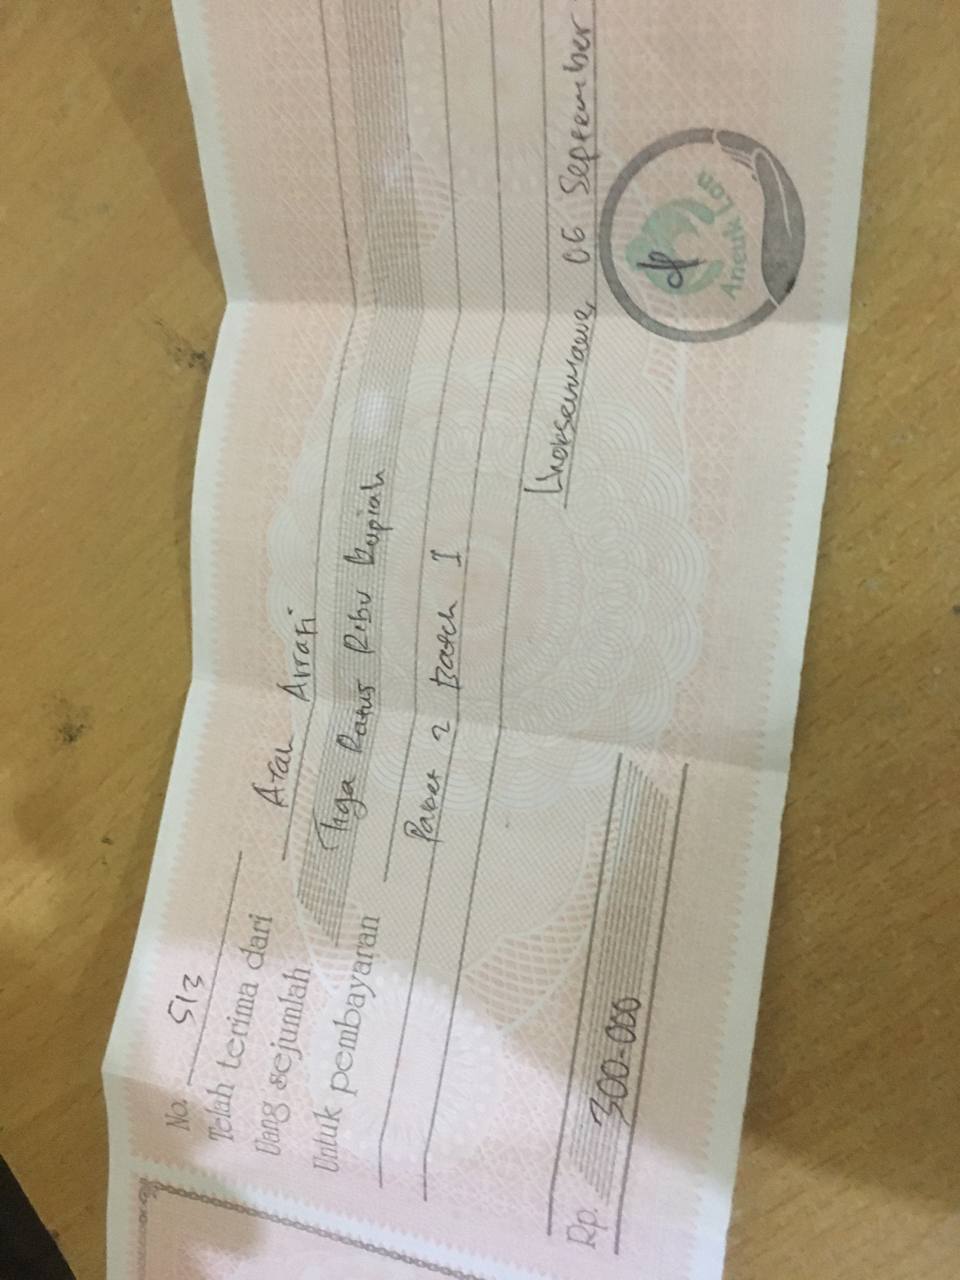 No. 513
Telah terima dari Atah Arrafi
Uang sejumlah Tiga Ratus Ribu Rupiah
Untuk pembayaran
Paket 2 Batch I
Lhokseumawe, 06 September
Rp. 300.000
Aneuk